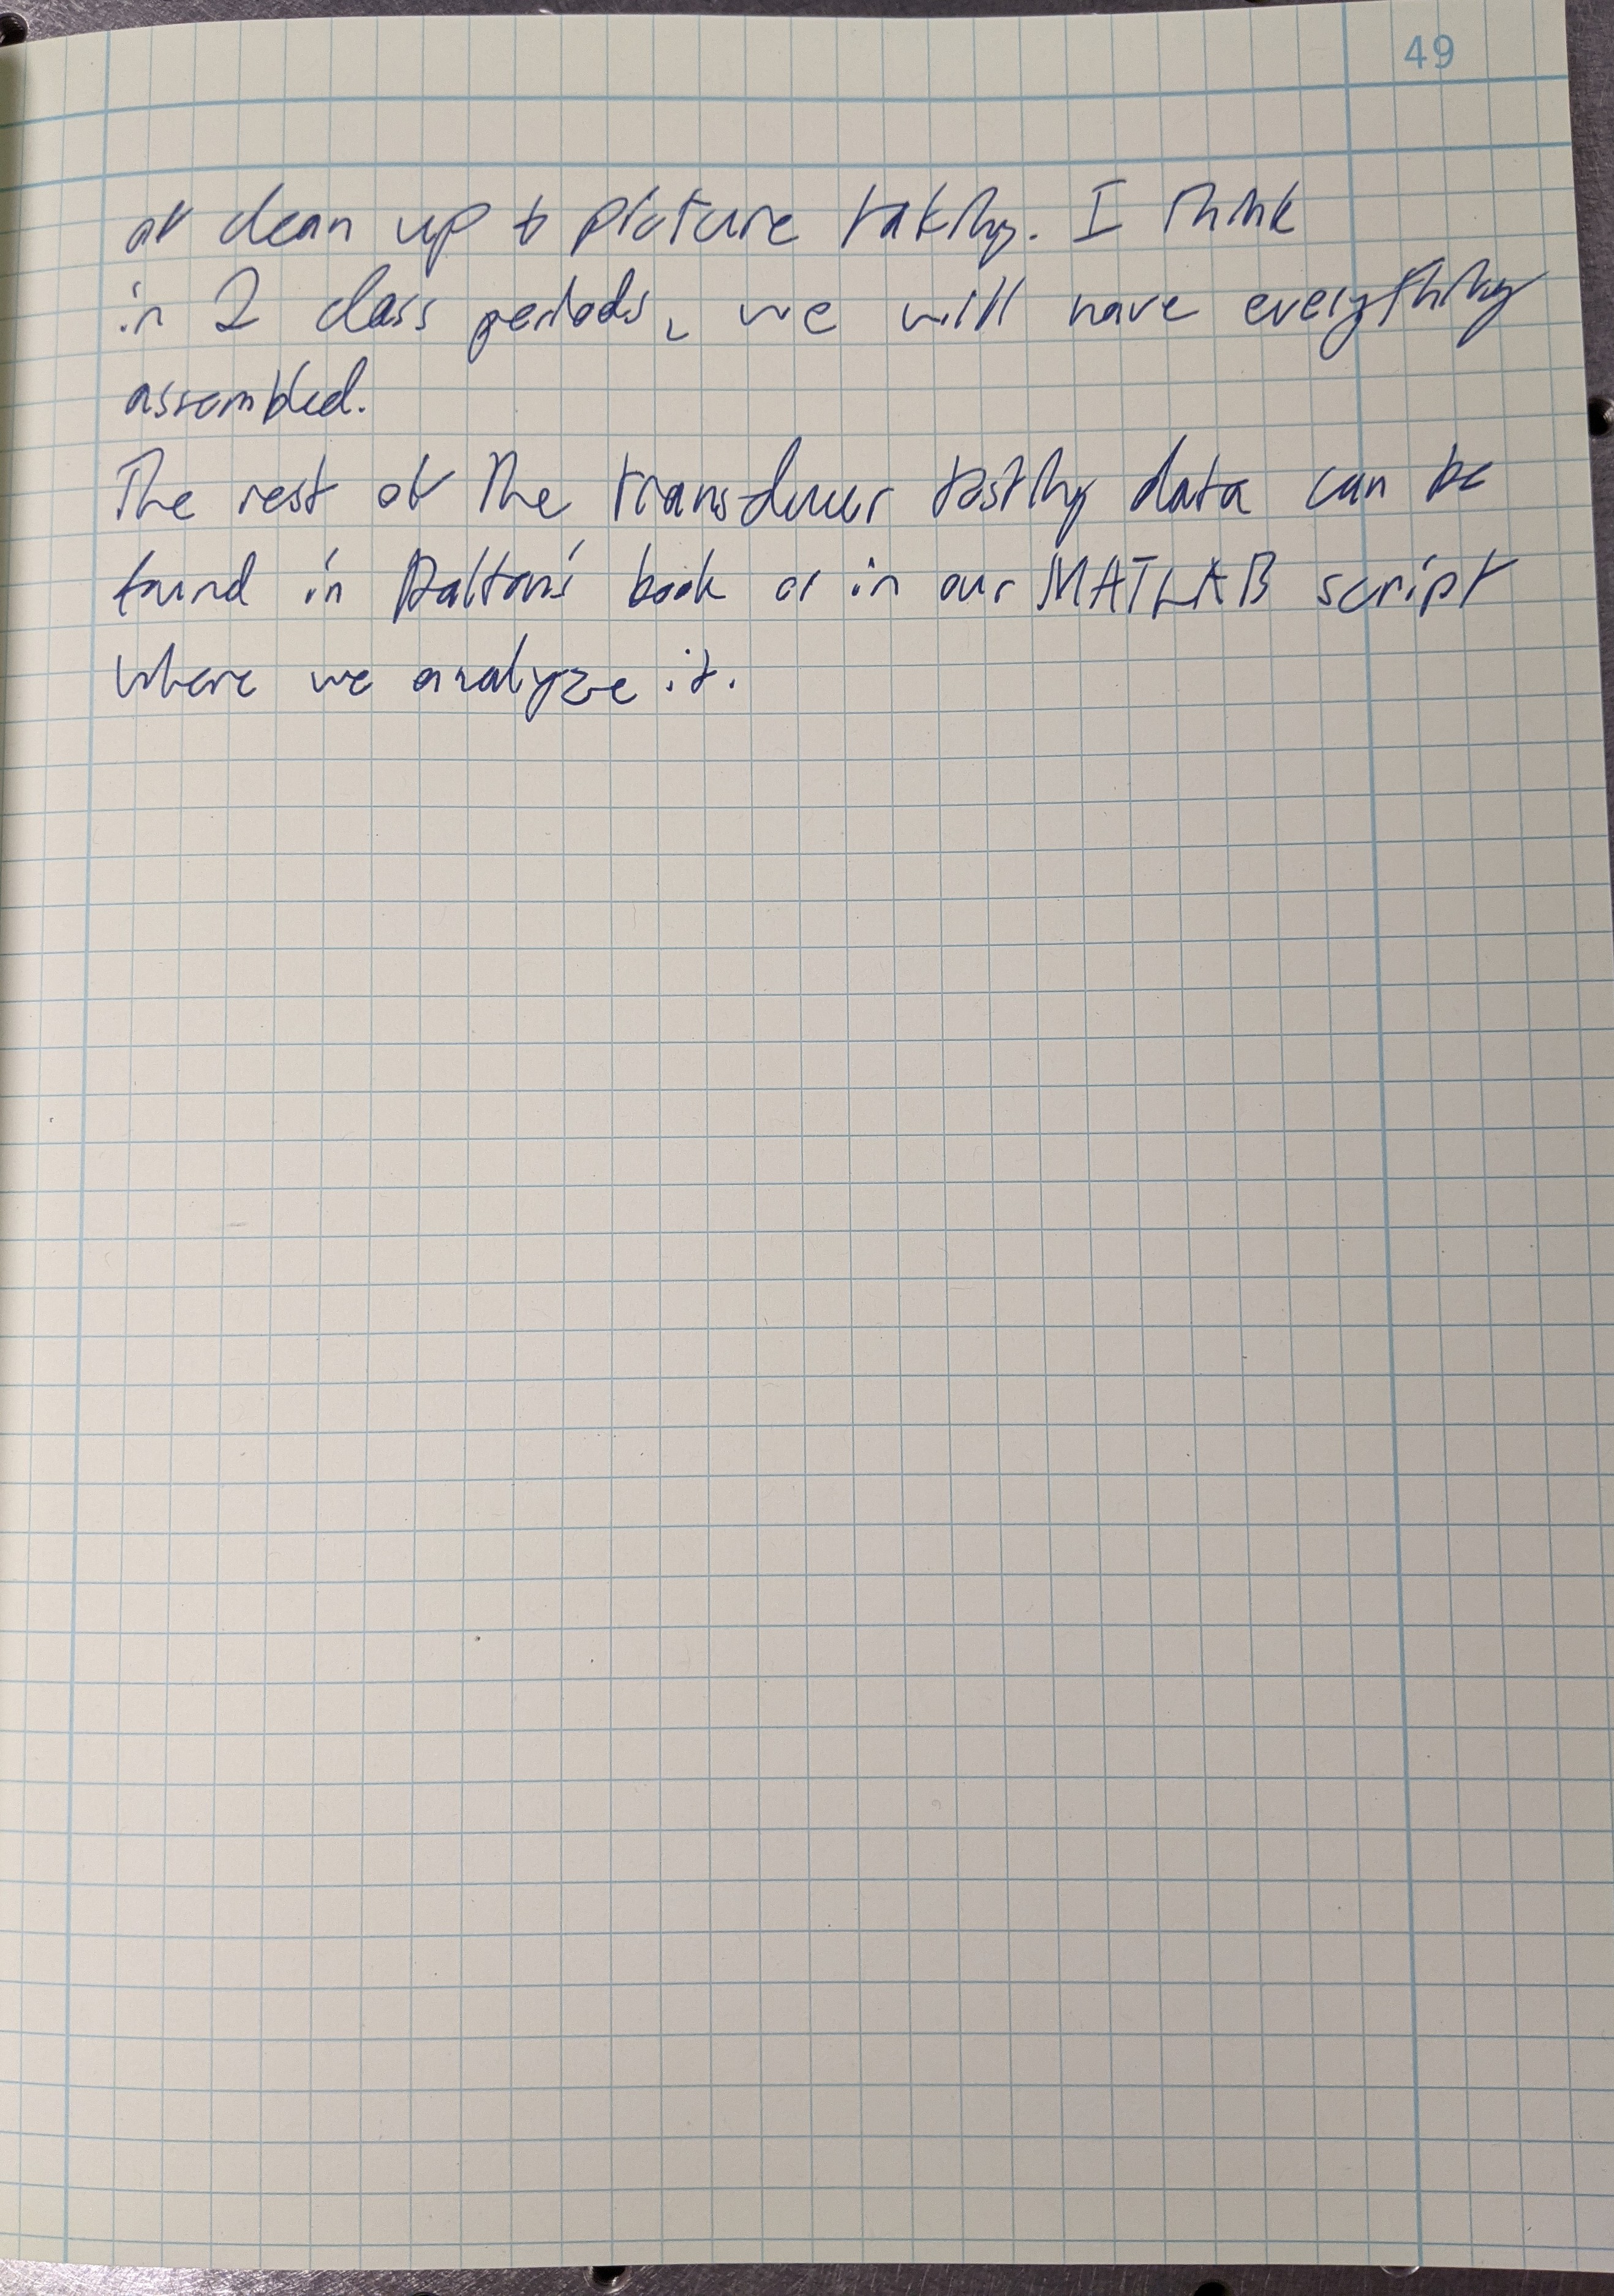 49
of clean up & picture taking. I think
in 2 class periods, we will have everything
assembled.
The rest of the transducer testing data can be
found in Dalton's book or in our MATLAB script
where we analyze it.